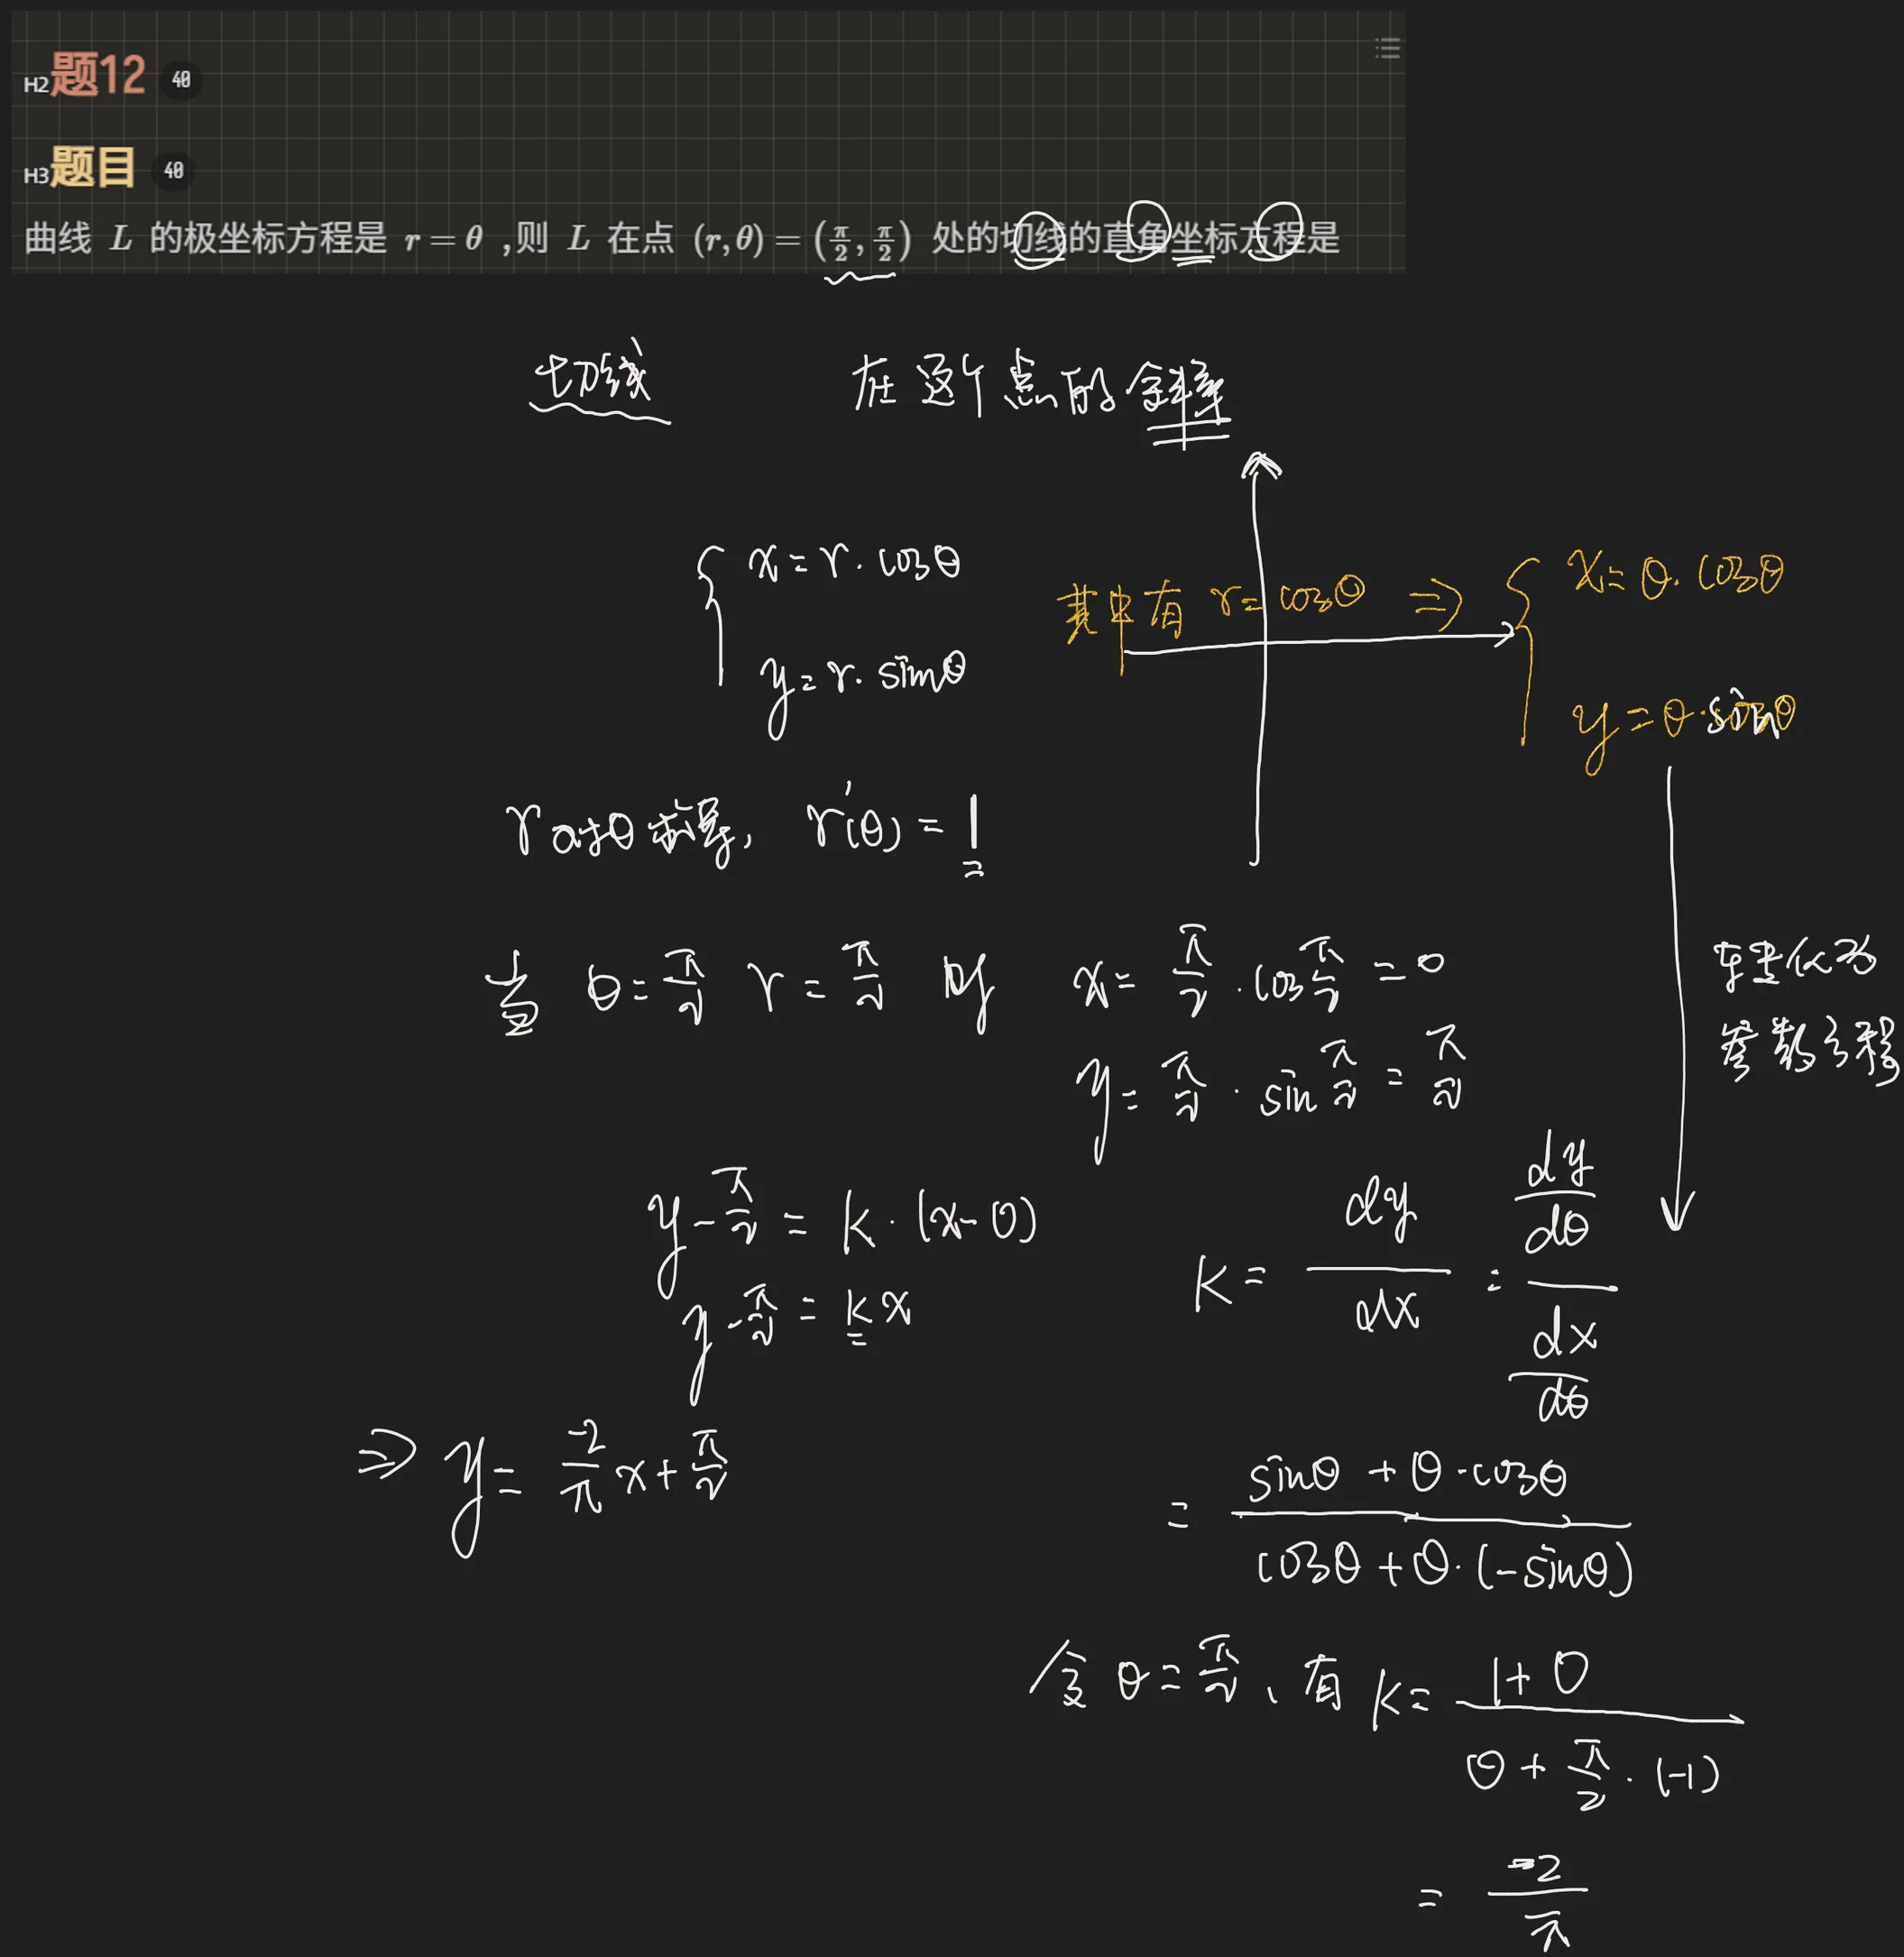 H2题12 40
H3题目 40
曲线 L 的极坐标方程是 r = θ ,则 L 在点 (r,θ) = (π/2, π/2) 处的切线的直角坐标方程是
切线 在这个点的斜率
{ x = r·cosθ
y = r·sinθ
其中有 r = cosθ ⇒ { x = θ·cosθ
y = θ·sinθ
r 对θ求导, r'(θ) = 1
当 θ = π/2 r = π/2 时 x = π/2 · cos π/2 = 0
y = π/2 · sin π/2 = π/2
参数方程
y - π/2 = k·(x-0)
y - π/2 = kx
⇒ y = -2/π x + π/2
k = dy/dx = (dy/dθ)/(dx/dθ)
= (sinθ + θ·cosθ)/(cosθ + θ·(-sinθ))
令 θ = π/2, 有 k = (1+0)/(0 + π/2·(-1))
= -2/π